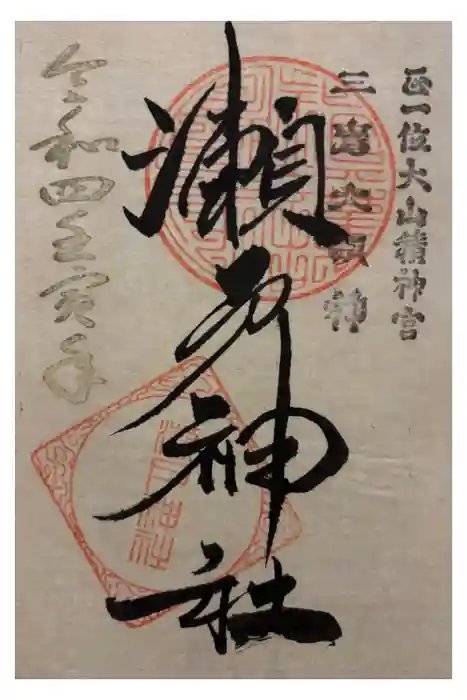 正一位大山積神宮
三島大明神
瀬戸神社
令和四壬寅年